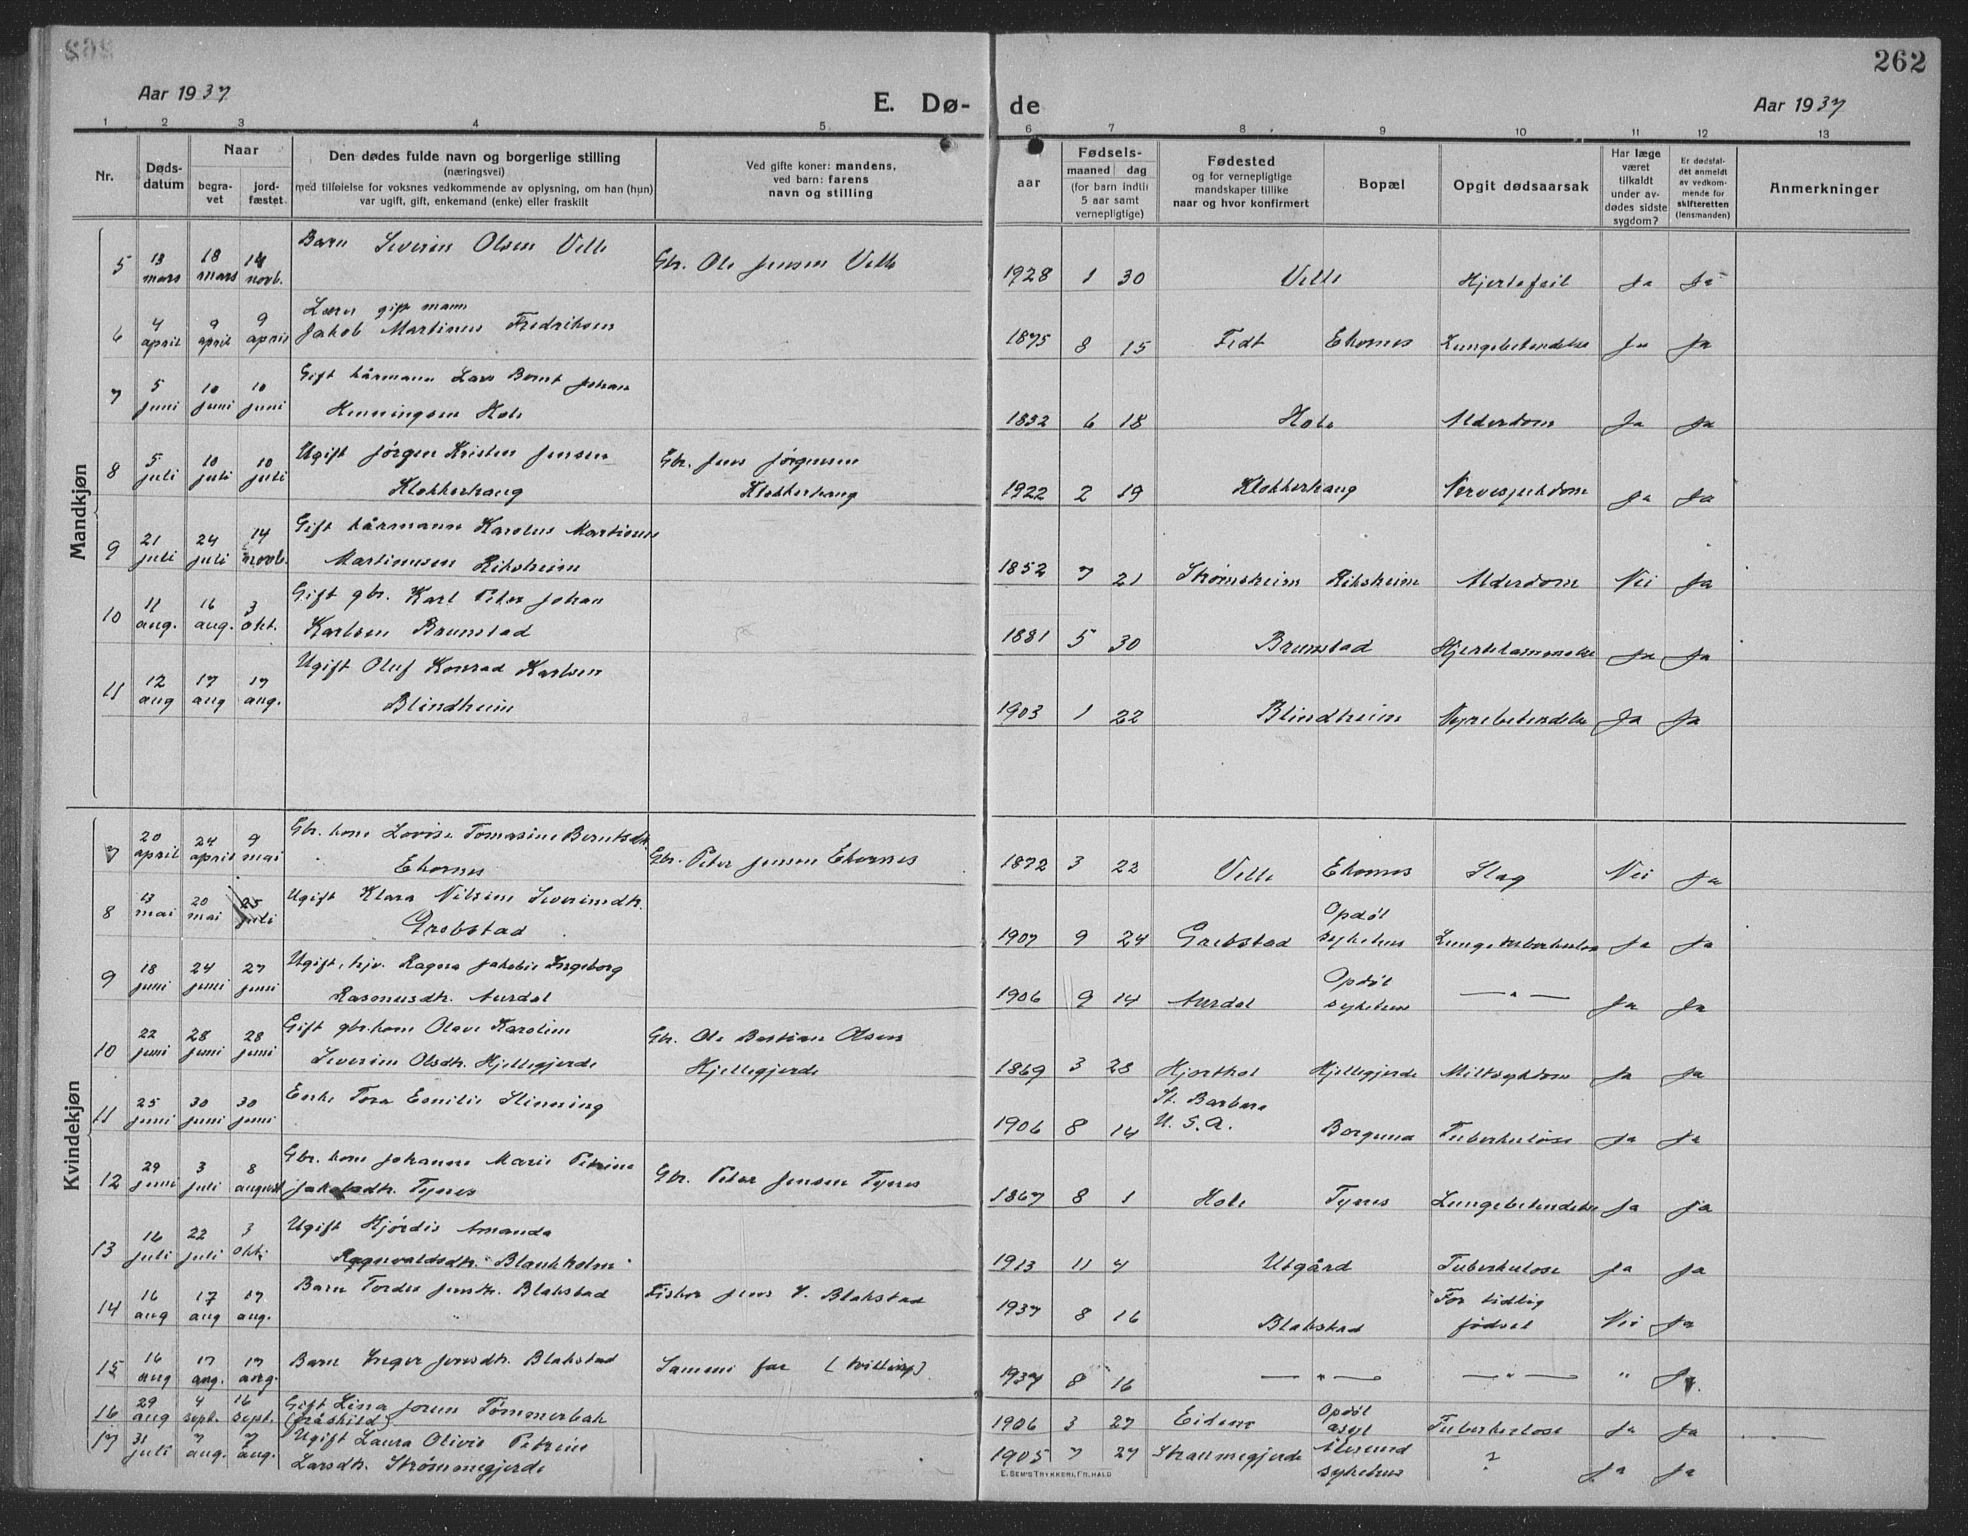 262
Aar 1937
E. Dø- de
Aar 1937
1 2 3 4 5 6 7 8 9 10 11 12 13
Nr.
Døds-
datum
Naar
begra-
vet
jord-
fæstet
Den dødes fulde navn og borgerlige stilling
(næringsvei)
med tilføielse for voksnes vedkommende av oplysning, om han (hun)
var ugift, gift, enkemand (enke) eller fraskilt
Ved gifte koner: mandens,
ved barn: farens
navn og stilling
aar
Fødsels-
maaned dag
(for barn indtil
5 aar samt
vernepligtige)
Fødested
og for vernepligtige
mandskaper tillike
naar og hvor konfirmert
Bopæl
Opgit dødsaarsak
Har læge
været
tilkaldt
under av-
dødes sidste
sygdom?
Er dødsfal-
det anmeldt
av vedkom-
mende for
skifteretten
(lensmanden)
Anmerkninger
Mandkjøn
5 13 mars 18 mars 14 novb. Barn Severin Olsen Velle Gbr. Ole Jensen Velle 1928 1 30 Velle Hjertefeil Ja Ja
6 4 april 9 april 9 april Lærer gift mann
Jakob Martinus Fredriksen 1875 8 15 Fedt Ekornes Lungebetendelse Ja Ja
7 5 juni 10 juni 10 juni Gift kårmann Lars Bernt Johan
Henningsen Hole 1832 6 18 Hole Alderdom Ja Ja
8 5 juli 10 juli 10 juli Ugift Jørgen Kristen Jensen
Klokkerhaug Gbr. Jens Jørgensen
Klokkerhaug 1922 2 19 Klokkerhaug Nervesjukdom Ja Ja
9 21 juli 24 juli 14 novb. Gift kårmann Karolus Martinus
Martinussen Riksheim 1852 7 21 Strømsheim Riksheim Alderdom Nei Ja
10 11 aug. 16 aug. 3 okt. Gift gbr. Karl Peter Johan
Karlsen Brunstad 1881 5 30 Brunstad Hjertelammelse Ja Ja
11 12 aug 17 aug 17 aug. Ugift Oluf Konrad Karlsen
Blindheim 1903 1 22 Blindheim Nyrebetendelse Ja Ja
Kvindekjøn
7 20 april 24 april 9 mai Gbr. kone Lovise Tomasine Berntsdtr.
Ekornes Gbr. Peter Jensen Ekornes 1872 3 22 Velle Ekornes Slag Nei Ja
8 13 mai 20 mai 25 juli Ugift Klara Nilsine Severinsdtr.
Grebstad 1907 9 24 Grebstad Opdøl
sykehus Lungetuberkulose Ja Ja
9 18 juni 24 juni 27 juni Ugift, hjv. Ragna Jakobie Ingeborg
Rasmusdtr. Aurdal 1906 9 14 Aurdal Opdøl
sykehus — " — Ja Ja
10 22 juni 28 juni 28 juni Gift gbr.kone Olave Karoline
Severine Olsdtr. Hjellegjerde Gbr. Ole Bastian Olsen
Hjellegjerde 1869 3 28 Hjorthol Hjellegjerde Miltsykdom Ja Ja
11 25 juni 30 juni 30 juni Enke Tora Emilie Slinning 1906 8 14 St. Barbara
U. S. A. Borgund Tuberkulose Ja Ja
12 29 juni 3 juli 8 august Gbr. kone Johanne Marie Petrine
Jakobsdtr. Tynes Gbr. Peter Jensen Tynes 1867 8 1 Hole Tynes Lungebetendelse Ja Ja
13 16 juli 22 juli 3 okt. Ugift Hjørdis Amanda
Ragnvaldsdtr. Blankholm 1913 11 4 Utgård Tuberkulose Ja Ja
14 16 aug 17 aug 17 aug. Barn Tordis Jensdtr. Blakstad Fisker Jens Blakstad 1937 8 16 Blakstad For tidlig
fødsel Nei Ja
15 16 aug 17 aug. 17 aug. Barn Inger Jensdtr. Blakstad Samme far (tvilling) 1937 8 16 — " — — " — " Ja
16 29 aug 4 sept. 16 sept. Gift Lina Tømmerbak
(fråskild) 1906 3 27 Eidem Opdøl
asyl Tuberkulose Ja Ja
17 31 juli 7 aug. 7 aug. Ugift Laura Olivie Petrine
Larsdtr. Strømmegjerde 1905 7 27 Strømmegjerde Ålesund
sykehus ? Ja Ja
E. SEM'S TRYKKERI, FR.HALD